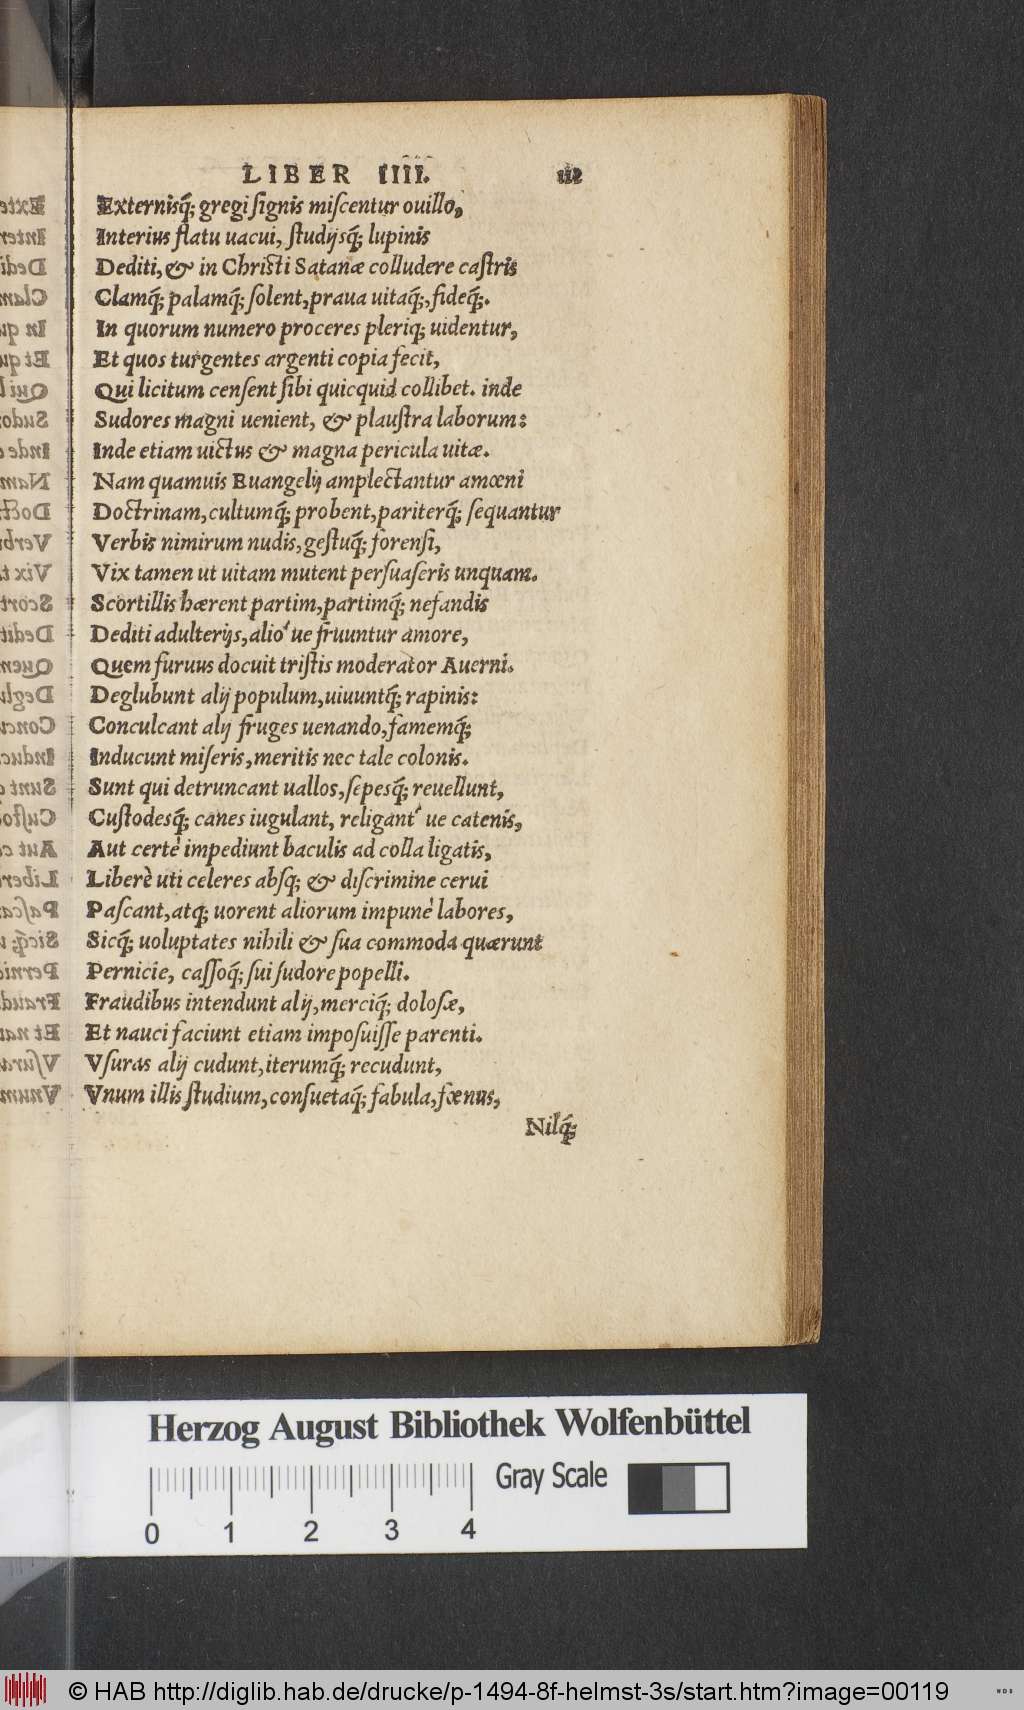 LIBER IIII.
Externisq́; gregi ſignis miſcentur ouillo,
Interius flatu uacui, ſtudijsq́; lupinis
Dediti, & in Chriſti Satanæ colludere caſtris
Clamq́; palamq́; ſolent, praua uitaq́;, fideq́;.
In quorum numero proceres pleriq; uidentur,
Et quos turgentes argenti copia fecit,
Qui licitum cenſent ſibi quicquid collibet. inde
Sudores magni uenient, & plauſtra laborum:
Inde etiam uictus & magna pericula uitæ.
Nam quamuis Euangelij amplectantur amœni
Doctrinam, cultumq́; probent, pariterq́; ſequantur
Verbis nimirum nudis, geſtuq́; forenſi,
Vix tamen ut uitam mutent perſuaſeris unquam.
Scortillis hærent partim, partimq́; nefandis
Dediti adulterijs, alio' ue fruuntur amore,
Quem furuus docuit triſtis moderator Auerni.
Deglubunt alij populum, uiuuntq́; rapinis:
Conculcant alij fruges uenando, famemq́;
Inducunt miſeris, meritis nec tale colonis.
Sunt qui detruncant uallos, ſepesq́; reuellunt,
Cuſtodesq́; canes iugulant, religant' ue catenis,
Aut certè impediunt baculis ad colla ligatis,
Liberè uti celeres absq; & diſcrimine cerui
Paſcant, atq; uorent aliorum impunè labores,
Sicq́; uoluptates nihili & ſua commoda quærunt
Pernicie, caſſoq́; ſui ſudore popelli.
Fraudibus intendunt alij, merciq́; doloſæ,
Et nauci faciunt etiam impoſuiſſe parenti.
Vſuras alij cudunt, iterumq́; recudunt,
Vnum illis ſtudium, conſuetaq́; fabula, fœnus,
Nilq́;
Herzog August Bibliothek Wolfenbüttel
Gray Scale
0 1 2 3 4
© HAB http://diglib.hab.de/drucke/p-1494-8f-helmst-3s/start.htm?image=00119